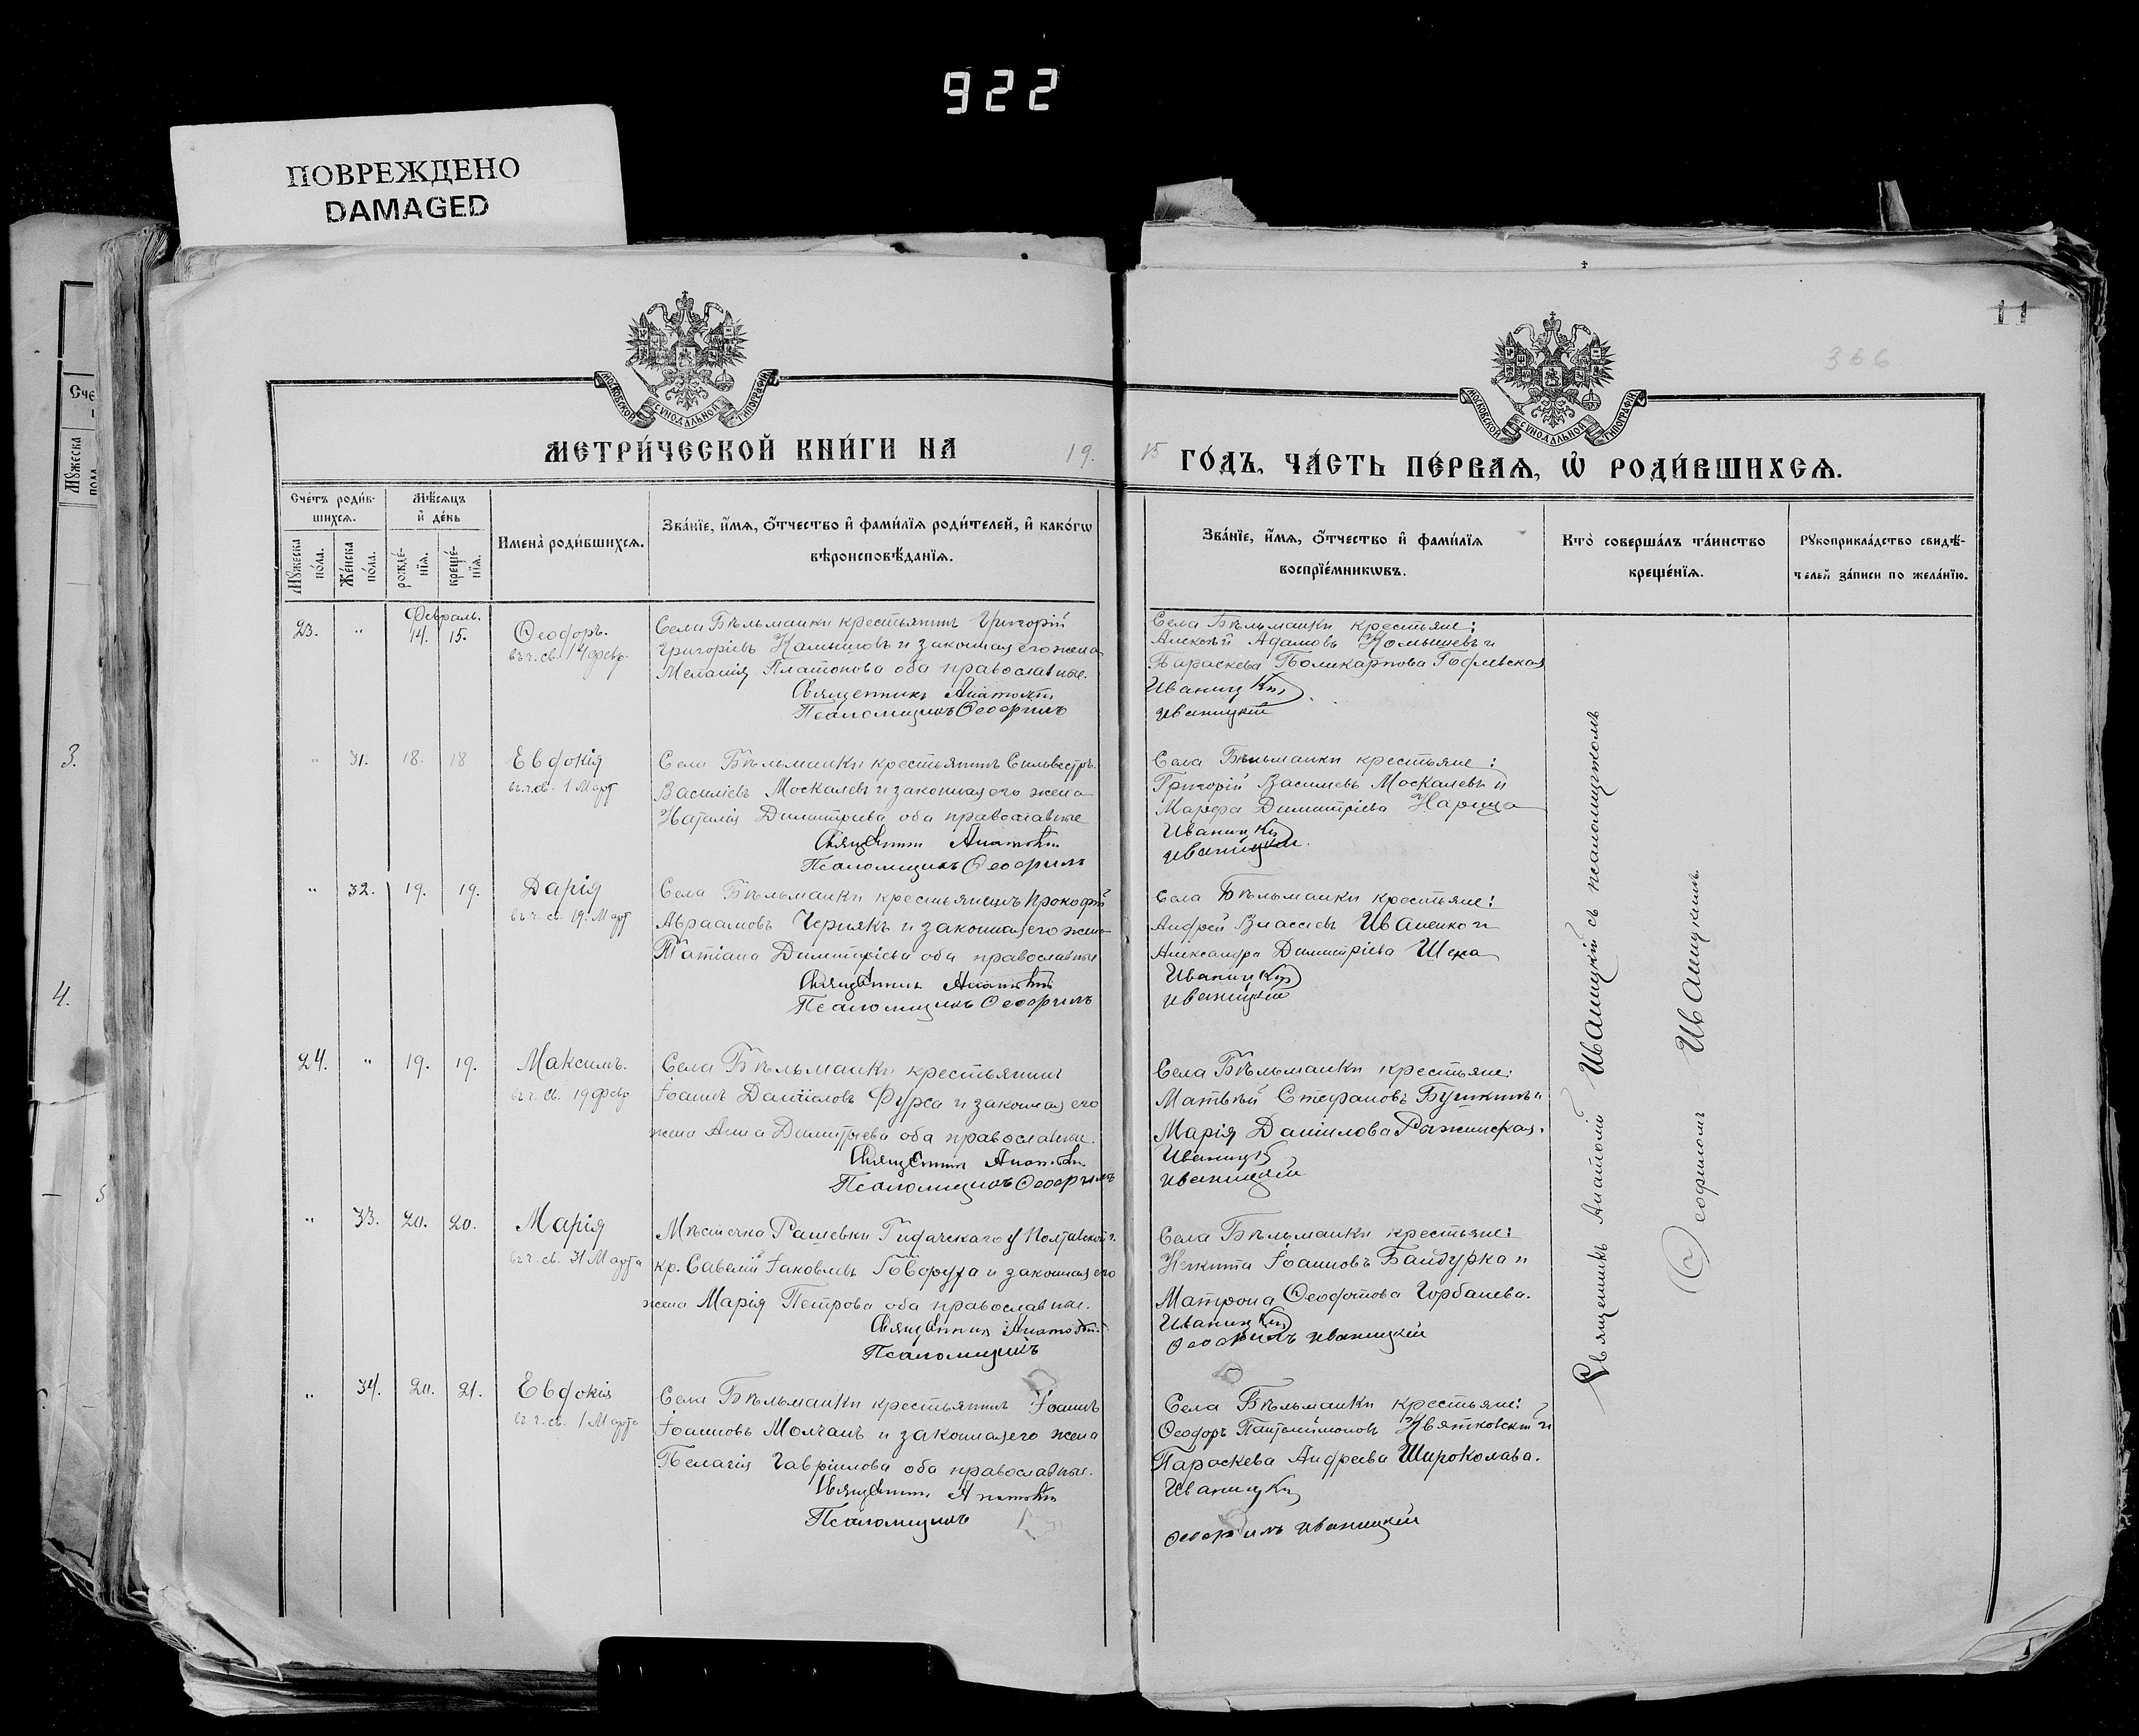 922
ПОВРЕЖДЕНО
DAMAGED
11
366
МОСКОВСКОЙ СѴНОДАЛЬНОЙ ТИПОГРАФІИ
МОСКОВСКОЙ СѴНОДАЛЬНОЙ ТИПОГРАФІИ
МЕТРИ́ЧЕСКОЙ КНИ́ГИ НА 19. 15 ГО́ДЪ, ЧА́СТЬ ПЕ́РВАѦ, Ѡ҆ РОДИ́ВШИХСѦ.
Сче́тъ роди́в-
шихсѧ.
Мѣ́сѧцъ
и҆ де́нь
Мꙋ́жеска по́ла.
Же́нска по́ла.
рожде́-нїѧ.
креще́-нїѧ.
Имена̀ роди́вшихсѧ.
Зва́нїе, и҆́мѧ, ѻ҆́тчество и҆ фами́лїѧ роди́телей, и҆ како́гѡ
вѣроисповѣ́данїѧ.
Зва́нїе, и҆́мѧ, ѻ҆́тчество и҆ фами́лїѧ
воспрїе́мникѡвъ.
Кто̀ соверша́лъ та́инство
креще́нїѧ.
Рꙋкоприкла́дство свидѣ́-
телей за́писи по жела́нїю.
Февраль.
23. " 14. 15. Ѳеодоръ.
въ ч. св. 14 февр.
Села Бѣльманки крестьянинъ Григорій
Григоріевъ Камышовъ и законная его жена
Меланія Платонова оба православные.
Священникъ Анатолій
Псаломщикъ Ѳеофилъ
Села Бѣльманки крестьяне:
Алексѣй Адамовъ Комышевъ и
Параскева Поликарпова
Иваницкій
Иваницкій
" 31. 18. 18 Евдокія
въ ч. св. 1 Март
Села Бѣльманки крестьянинъ Сильвестръ
Василіевъ Москалевъ и законная его жена
Наталія Димитріева оба православные
Священникъ Анатолій
Псаломщикъ Ѳеофилъ
Села Бѣльманки крестьяне:
Григорій Василіевъ Москалевъ и
Марфа Димитріева Нарица
Иваницкій
Иваницкій
" 32. 19. 19. Дарія
въ ч. св. 19. Март
Села Бѣльманки крестьянинъ Прокофій
Авраамовъ Чернякъ и законная его жена
Татіана Димитріева оба православные
Священникъ Анатолій
Псаломщикъ Ѳеофилъ
Села Бѣльманки крестьяне:
Андрей Власіевъ Иваненко и
Александра Димитріева
Иваницкій
Иваницкій
24. " 19. 19. Максимъ.
въ ч. св. 19 февр
Села Бѣльманки крестьянинъ
Іоаннъ Даніиловъ Фурса и законная его
жена Анна Димитріева оба православные.
Священникъ Анатолій
Псаломщикъ Ѳеофилъ
Села Бѣльманки крестьяне:
Матвѣй Стефановъ и
Марія Даніилова
Иваницкій
Иваницкій
" 33. 20. 20. Марія
въ ч. св. 31 Марта
Мѣстечка Рашевки Гадячскаго у Полтавской г.
кр. Савелій Іаковлевъ Говоруха и законная его
жена Марія Петрова оба православные.
Священникъ Анатолій
Псаломщикъ
Села Бѣльманки крестьяне:
Никита Іоанновъ Бандурка и
Матрона Ѳеодотова Горбанева.
Иваницкій
Ѳеофилъ Иваницкій
" 34. 20. 21. Евдокія
въ ч. св. 1 Марта
Села Бѣльманки крестьянинъ Іоаннъ
Іоанновъ Молчанъ и законная его жена
Пелагія Гавріилова оба православные.
Священникъ Анатолій
Псаломщикъ
Села Бѣльманки крестьяне:
Ѳеодоръ Пантелимоновъ Квятковскій и
Параскева Андреева Широколава.
Иваницкій
Ѳеофилъ Иваницкій
Священникъ Анатолій Иваницкій съ псаломщикомъ
Ѳеофиломъ Иваницкимъ.
Сче
Мꙋжеска
пола
3.
4.